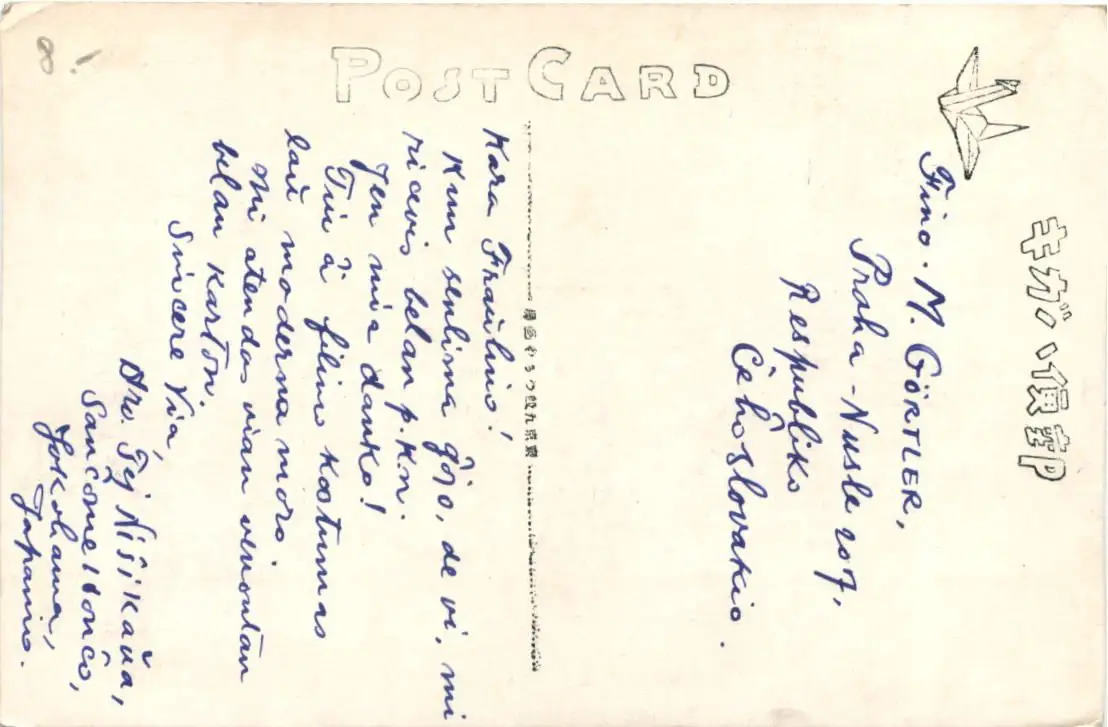 8.-
POST CARD
キガハ便郵
Kara Fraŭlino!
Kun senlima ĝojo, de vi, mi
ricevis belan p.kon.
Jen mia danko!
Tiu ĉi filino kostumas
laŭ moderna moro.
Mi atendas vian venontan
belan karton.
Sincere Via,
Tej Niŝikaŭa,
Jokohama,
Japanio.
Fino. M. GÖRTLER,
Praha-Nusle 207,
Respubliko
Ĉeĥoslovakio.